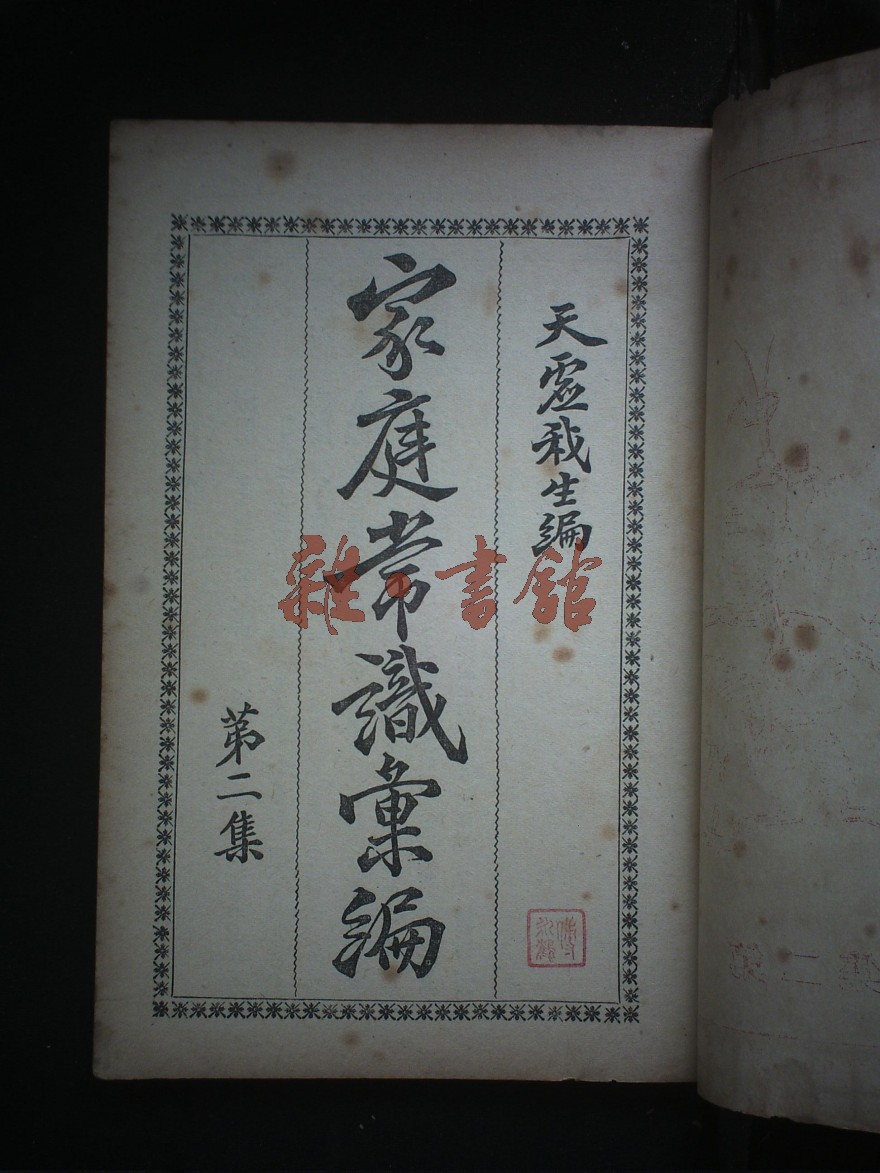 天虛我生編
家庭常識彙編
第二集
雜·書館